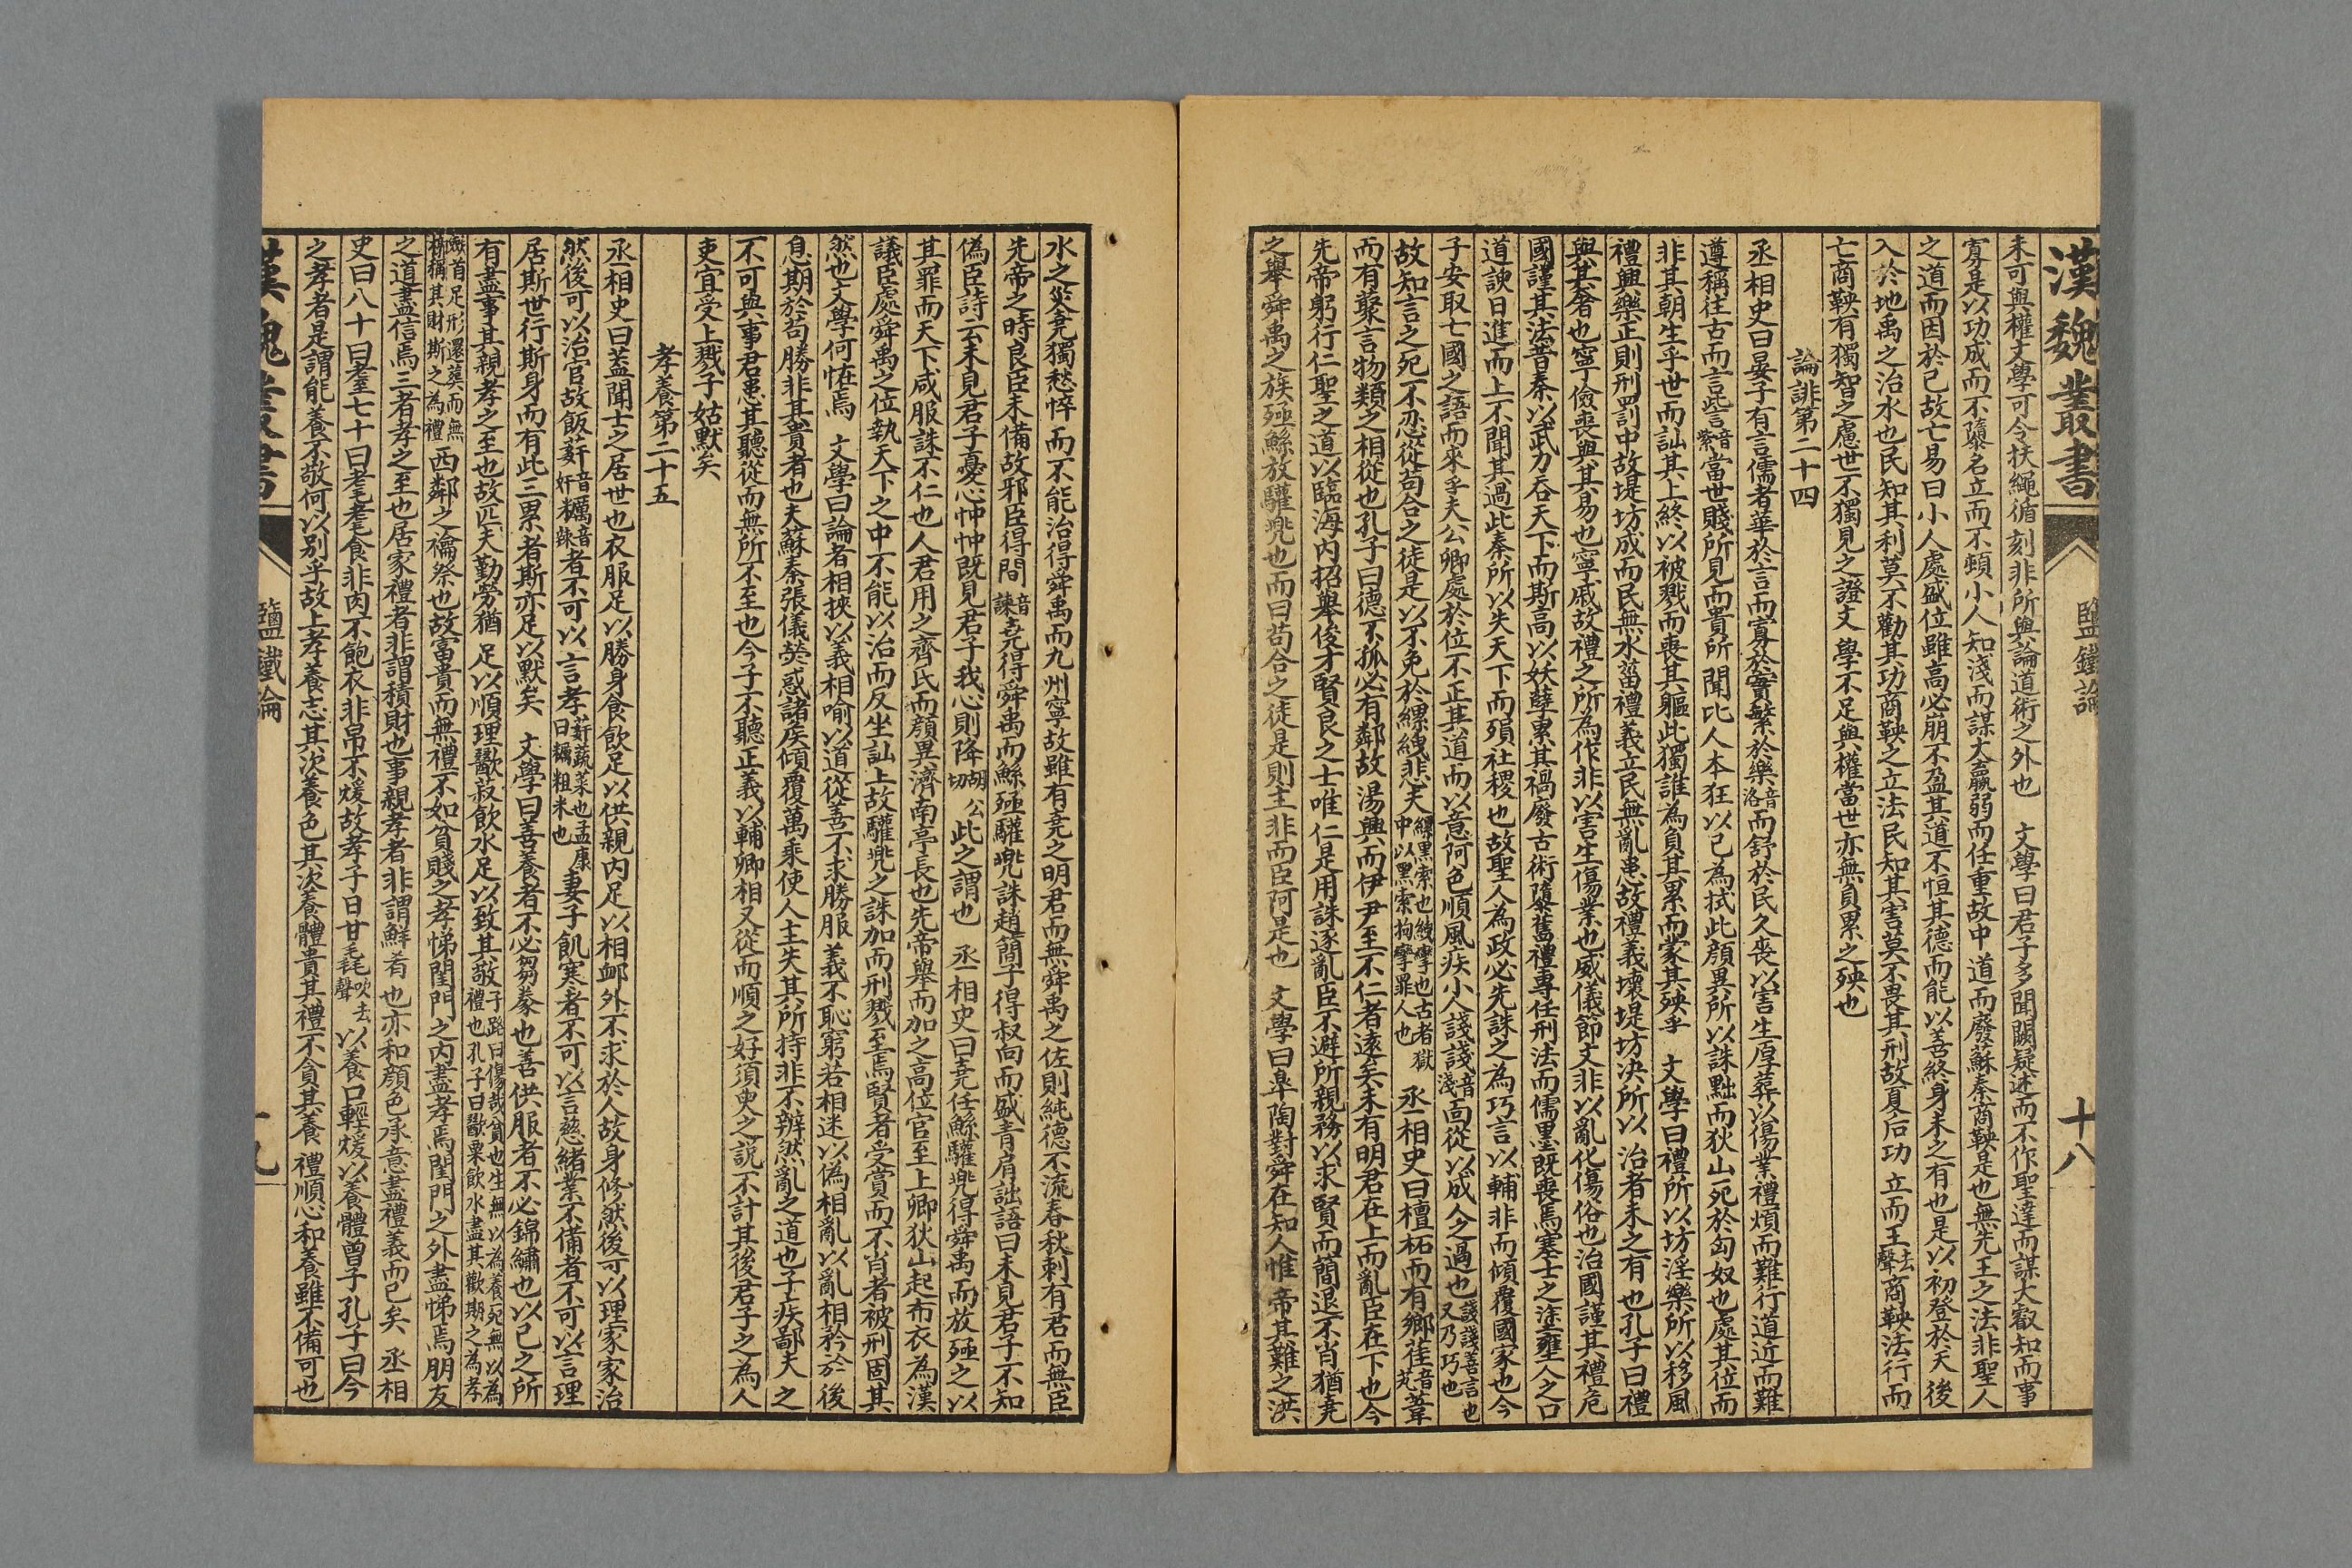 漢魏叢書 鹽鐵論 十八
未可與權文學可令扶繩循刻非所與論道術之外也 文學曰君子多聞闕疑述而不作聖達而謀大叡知而事
寡是以功成而不隳名立而不頓小人知淺而謀大羸弱而任重故中道而廢蘇秦商鞅是也無先王之法非聖人
之道而因於己故亡易曰小人處盛位雖高必崩不盈其道不恒其德而能以善終身未之有也是以初登於天後
入於地禹之治水也民知其利莫不勸其功商鞅之立法民知其害莫不畏其刑故夏后功立而王去聲商鞅法行而
亡商鞅有獨智之慮世不獨見之證文學不足與權當世亦無負累之殃也
論誹第二十四
丞相史曰晏子有言儒者華於言而寡於實繁於樂音洛而舒於民久喪以害生厚葬以傷業禮煩而難行道迂而難
遵稱往古而言訾音紫當世賤所見而貴所聞此人本狂以己為拭此顏異所以誅黜而狄山死於匈奴也處其位而
非其朝生乎世而訕其上終以被戮而喪其軀此獨誰為負其累而蒙其殃乎 文學曰禮所以坊淫樂所以移風
禮興樂正則刑罰中故堤坊成而民無水菑禮義立民無亂患故禮義壞堤坊决所以治者未之有也孔子曰禮
與其奢也寧儉喪與其易也寧戚故禮之所為作非以害生傷業也威儀節文非以亂化傷俗也治國謹其禮危
國謹其法昔秦以武力吞天下而斯高以妖孽累其禍廢古術隳舊禮專任刑法而儒墨既喪焉塞士之塗壅人之口
道諛日進而上不聞其過此秦所以失天下而殞社稷也故聖人為政必先誅之為巧言以輔非而傾覆國家也今
子安取亡國之語而來乎夫公卿處於位不正其道而以意阿色順風疾小人諓諓音淺面從以成人之過也諓諓善言也又乃巧也
故知言之死不忍從苟合之徒是以不免於縲絏悲夫縲黑索也絏攣也古者獄中以黑索拘攣罪人也 丞相史曰檀柘而有鄉萑音芄葦
而有藂言物類之相從也孔子曰德不孤必有鄰故湯興而伊尹至不仁者遠矣未有明君在上而亂臣在下也今
先帝躬行仁聖之道以臨海内招舉俊才賢良之士唯仁是用誅逐亂臣不避所親務以求賢而簡退不肖猶堯
之舉舜禹之族殛鯀放驩兜也而曰苟合之徒是則主非而臣阿是也 文學曰皐陶對舜在知人惟帝其難之洪
水之災堯獨愁悴而不能治得舜禹而九州寧故雖有堯之明君而無舜禹之佐則純德不流春秋刺有君而無臣
先帝之時良臣未備故邪臣得間音諫堯得舜禹而鯀殛驩兜誅趙簡子得叔向而盛青肩詘語曰未見君子不知
偽臣詩云未見君子憂心忡忡既見君子我心則降胡公切此之謂也 丞相史曰堯任鯀驩兜得舜禹而放殛之以
其罪而天下咸服誅不仁也人君用之齊民而顏異濟南亭長也先帝舉而加之高位官至上卿狄山起布衣為漢
議臣處舜禹之位執天下之中不能以治而反坐訕上故驩兜之誅加而刑戮至焉賢者受賞而不肖者被刑固其
然也文學何怪焉 文學曰論者相挾以義相喻以道從善不求勝服義不恥窮若相迷以偽相亂以亂相矜於後
息期於苟勝非其貴者也夫蘇秦張儀熒惑諸侯傾覆萬乘使人主失其所持非不辨然亂之道也子疾鄙夫之
不可與事君患其聽從而無所不至也今子不聽正義以輔卿相又從而順之好須臾之説不計其後君子之為人
吏宜受上戮子姑默矣
孝養第二十五
丞相史曰蓋聞士之居世也衣服足以勝身食飲足以供親内足以相卹外不求於人故身修然後可以理家家治
然後可以治官故飯菥音奸糲音辣者不可以言孝菥蔬菜也孟康曰糲粗米也妻子飢寒者不可以言慈緒業不備者不可以言理
居斯世行斯身而有此三累者斯亦足以默矣 文學曰善養者不必芻豢也善供服者不必錦繡也以己之所
有盡事其親孝之至也故匹夫勤勞猶足以順理歠菽飲水足以致其敬子路曰傷哉貧也生無以為養死無以為禮也孔子曰歠粟飲水盡其歡期之為孝
歛首足形還葬而無椁稱其財斯之為禮西鄰之禴祭也故富貴而無禮不如貧賤之孝悌閨門之内盡孝焉閨門之外盡悌焉朋友
之道盡信焉三者孝之至也居家禮者非謂積財也事親孝者非謂鮮肴也亦和顔色承意盡禮義而已矣 丞相
史曰八十曰耋七十曰耄耄食非肉不飽衣非帛不煖故孝子日甘毳吹去聲以養口輕煖以養體曾子孔子曰今
之孝者是謂能養不敬何以别乎故上孝養志其次養色其次養體貴其禮不貪其養禮順心和養雖不備可也
漢魏叢書 鹽鐵論